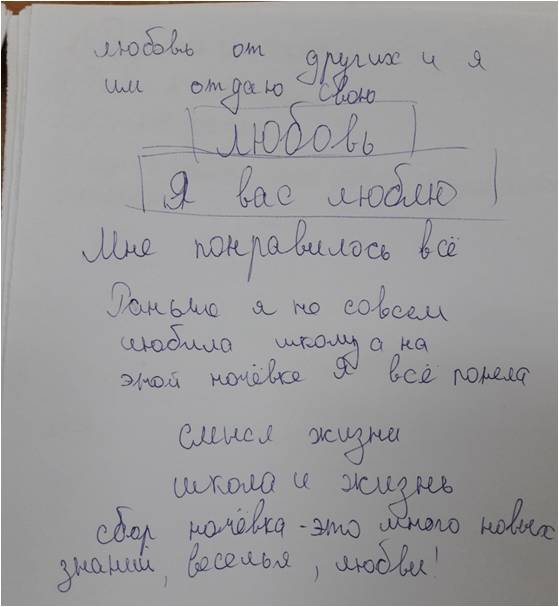 любовь от других и я
им отдаю свою
любовь
Я вас люблю
Мне понравилось всё
Раньше я не совсем
любила школу а на
этой ночёвке я всё понела
смысл жизни
школа и жизнь
сбор ночёвка - это много новых
знаний, веселья, любви!